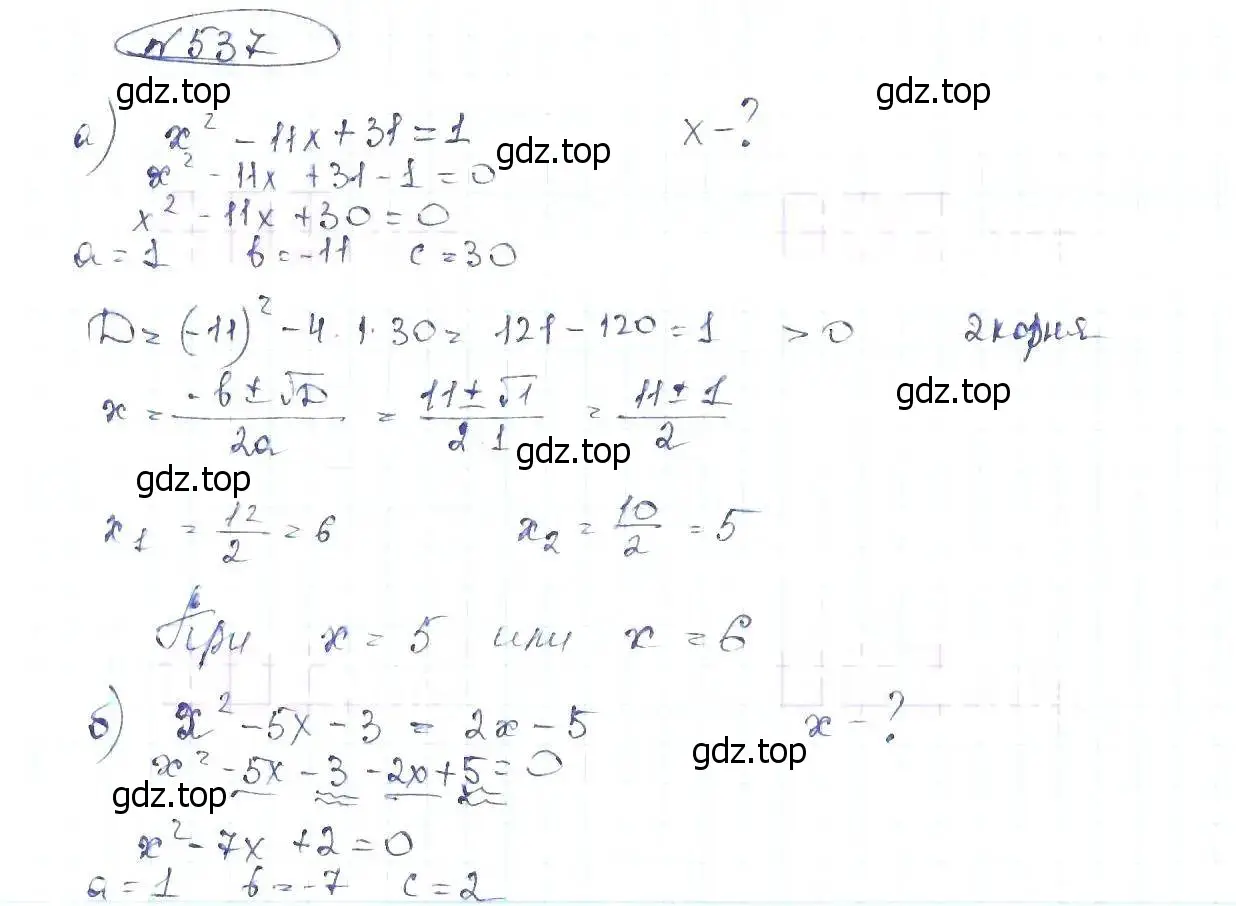 №537
gdz.top gdz.top
а) x² - 11x + 31 = 1 x - ?
gdz.top
x² - 11x + 31 - 1 = 0
x² - 11x + 30 = 0
a = 1 b = -11 c = 30
D = (-11)² - 4 · 1 · 30 = 121 - 120 = 1 > 0 2 корня
gdz.top
x = (-b ± √D)/2a = (11 ± √1)/(2 · 1) = (11 ± 1)/2
gdz.top gdz.top
x₁ = 12/2 = 6 x₂ = 10/2 = 5
При x = 5 или x = 6
б) x² - 5x - 3 = 2x - 5 x - ?
gdz.top
x² - 5x - 3 - 2x + 5 = 0
gdz.top
x² - 7x + 2 = 0
a = 1 b = -7 c = 2